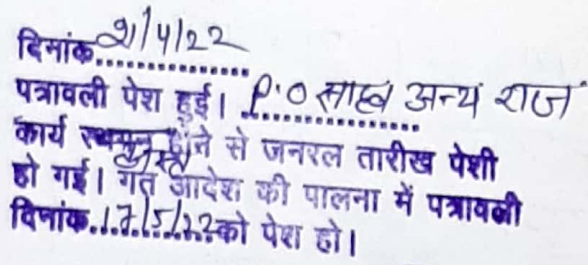 दिनांक 21/4/22
पत्रावली पेश हुई। P.O साहब अन्य राज
कार्य व्यस्त होने से जनरल तारीख पेशी
हो गई। गत आदेश की पालना में पत्रावली
दिनांक 17/5/22 को पेश हो।